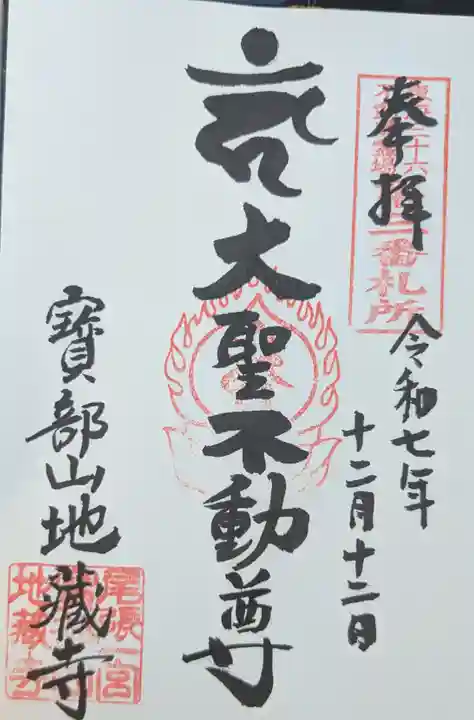 奉拝
二番札所
令和七年
十二月十二日
大聖不動尊
寶部山地蔵寺
尾張一宮
地蔵寺